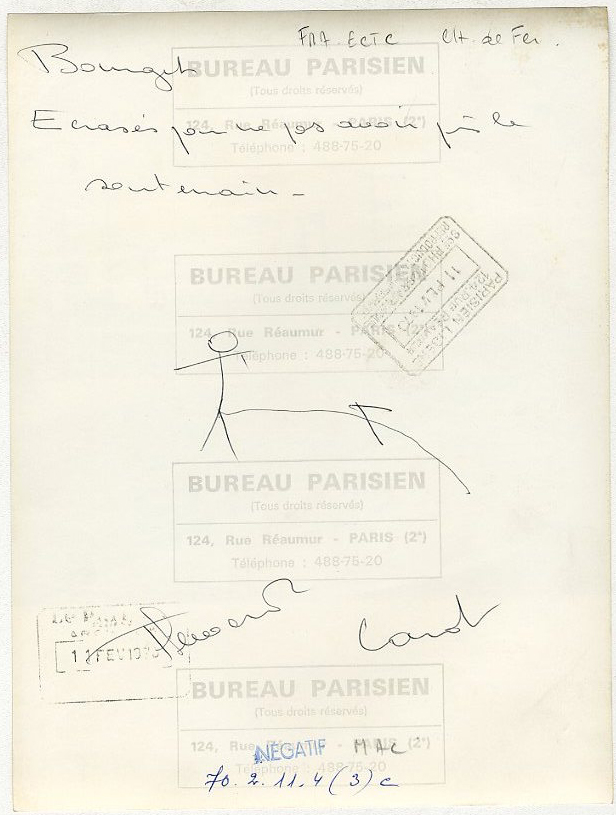 FAA ECTC Ch. de Fer.
Bourget
BUREAU PARISIEN
(Tous droits réservés)
Ecrasés pour ne pas avoir pris le
124, Rue Réaumur - PARIS (2e)
Téléphone : 488-75-20
souterrain -
BUREAU PARISIEN
(Tous droits réservés)
124, Rue Réaumur - PARIS
Téléphone : 488-75-20
PARISIEN LIBERE
11 FEV 1970
BUREAU PARISIEN
(Tous droits réservés)
124, Rue Réaumur - PARIS (2e)
Téléphone : 488-75-20
11 FEV 1970
BUREAU PARISIEN
(Tous droits réservés)
124, Rue Réaumur - PARIS (2e)
Téléphone : 488-75-20
NÉGATIF MAC
70.2.11.4 (3) c